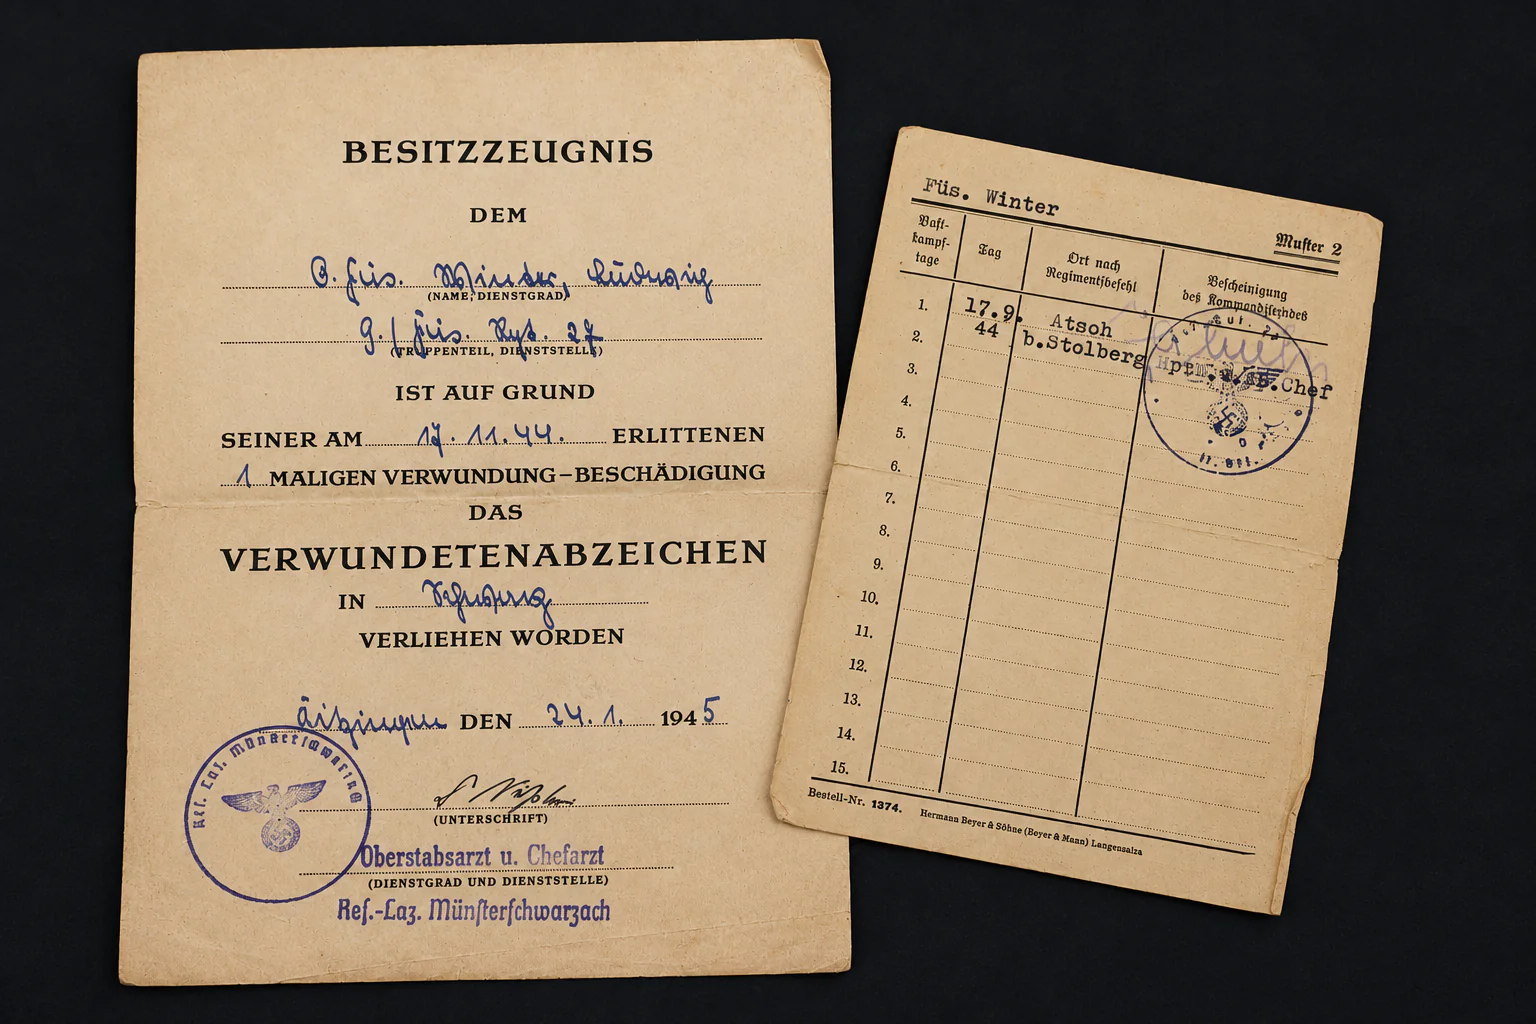 BESITZZEUGNIS
DEM
Winter, Ludwig
(NAME, DIENSTGRAD)
9./Füs. Rgt. 27
(TRUPPENTEIL, DIENSTSTELLE)
IST AUF GRUND
SEINER AM 17.11.44. ERLITTENEN
1 MALIGEN VERWUNDUNG–BESCHÄDIGUNG
DAS
VERWUNDETENABZEICHEN
IN Schwarz
VERLIEHEN WORDEN
DEN 24.1. 1945
(UNTERSCHRIFT)
Oberstabsarzt u. Chefarzt
(DIENSTGRAD UND DIENSTSTELLE)
Res.-Laz. Münsterschwarzach
Füs. Winter
Muster 2
kampf-
tage
Tag
Ort nach
Regimentsbefehl
Bescheinigung
des
1. 17.9. Atsch
2. 44 b.Stolberg
3. Chef
4.
5.
6.
7.
8.
9.
10.
11.
12.
13.
14.
15.
Bestell-Nr. 1374. Hermann Beyer & Söhne (Beyer & Mann) Langensalza